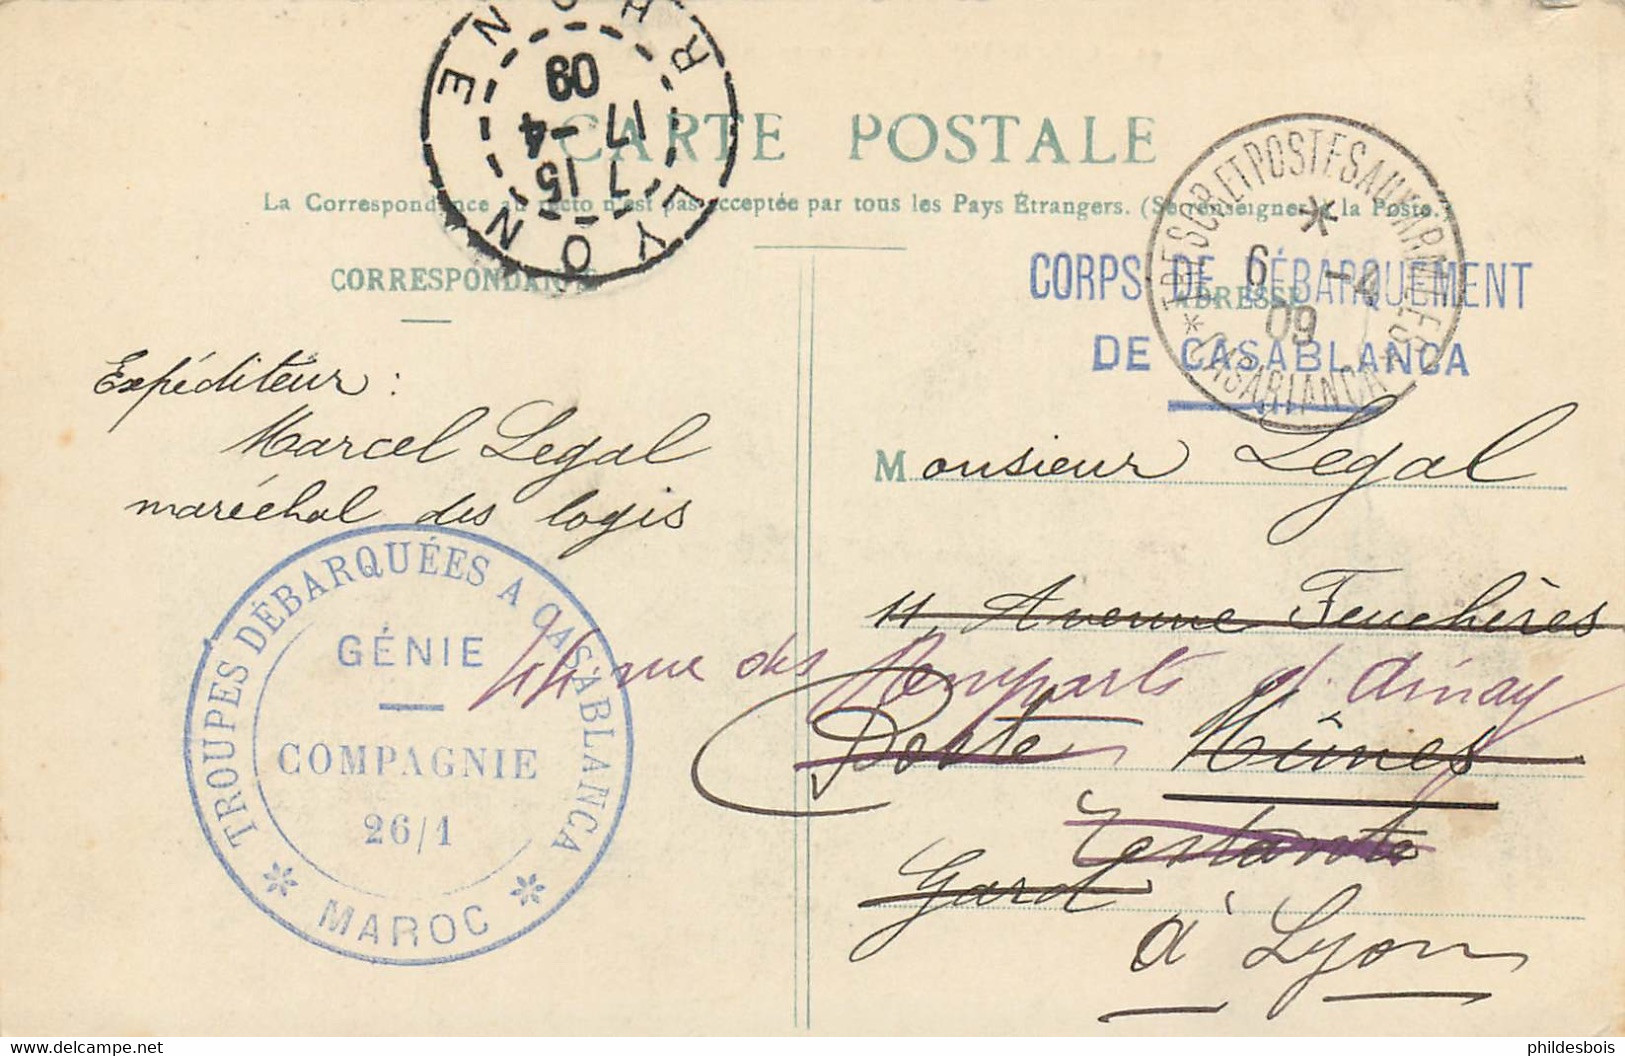 LYON
RHONE
7 15
17 -4
09
CARTE POSTALE
La Correspondance au recto n'est pas acceptée par tous les Pays Étrangers. (Se renseigner à la Poste.)
CORRESPONDANCE
ADRESSE
TRESOR ET POSTES AUX ARMÉES
*
6 -4
09
* CASABLANCA *
CORPS DE DÉBARQUEMENT
DE CASABLANCA
Expéditeur :
Marcel Legal
maréchal des logis
TROUPES DÉBARQUÉES A CASABLANCA
GÉNIE
COMPAGNIE
26/1
* MAROC *
Monsieur Legal
11, Avenue Feuchères
44 rue des Remparts d'Ainay
Poste Nîmes
restante
Gard
à Lyon
phildesbois
www.delcampe.net